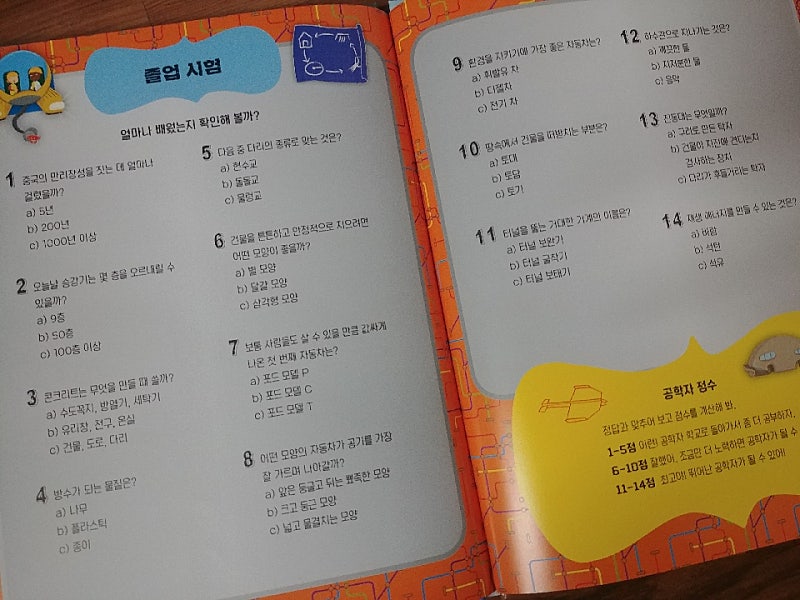 졸업 시험
얼마나 배웠는지 확인해 볼까?
1 중국의 만리장성을 짓는 데 얼마나
걸렸을까?
a) 5년
b) 200년
c) 1000년 이상
2 오늘날 승강기는 몇 층을 오르내릴 수
있을까?
a) 9층
b) 50층
c) 100층 이상
3 콘크리트는 무엇을 만들 때 쓸까?
a) 수도꼭지, 방열기, 세탁기
b) 유리창, 전구, 온실
c) 건물, 도로, 다리
4 방수가 되는 물질은?
a) 나무
b) 플라스틱
c) 종이
5 다음 중 다리의 종류로 맞는 것은?
a) 현수교
b) 돌돌교
c) 물렁교
6 건물을 튼튼하고 안정적으로 지으려면
어떤 모양이 좋을까?
a) 별 모양
b) 달걀 모양
c) 삼각형 모양
7 보통 사람들도 살 수 있을 만큼 값싸게
나온 첫 번째 자동차는?
a) 포드 모델 P
b) 포드 모델 C
c) 포드 모델 T
8 어떤 모양의 자동차가 공기를 가장
잘 가르며 나아갈까?
a) 앞은 둥글고 뒤는 뾰족한 모양
b) 크고 둥근 모양
c) 넓고 물결치는 모양
9 환경을 지키기에 가장 좋은 자동차는?
a) 휘발유 차
b) 디젤차
c) 전기 차
10 땅속에서 건물을 떠받치는 부분은?
a) 토대
b) 토담
c) 토기
11 터널을 뚫는 거대한 기계의 이름은?
a) 터널 보완기
b) 터널 굴착기
c) 터널 보태기
12 하수관으로 지나가는 것은?
a) 깨끗한 물
b) 지저분한 물
c) 음악
13 진동대는 무엇일까?
a) 고러로 만든 탁자
b) 건물이 지진에 견디는지
검사하는 장치
c) 다리가 후들거리는 탁자
14 재생 에너지를 만들 수 있는 것은?
a) 바람
b) 석탄
c) 석유
공학자 점수
정답과 맞추어 보고 점수를 계산해 봐.
1-5점 이런! 공학자 학교로 돌아가서 좀 더 공부하자.
6-10점 잘했어. 조금만 더 노력하면 공학자가 될 수
11-14점 최고야! 뛰어난 공학자가 될 수 있어!